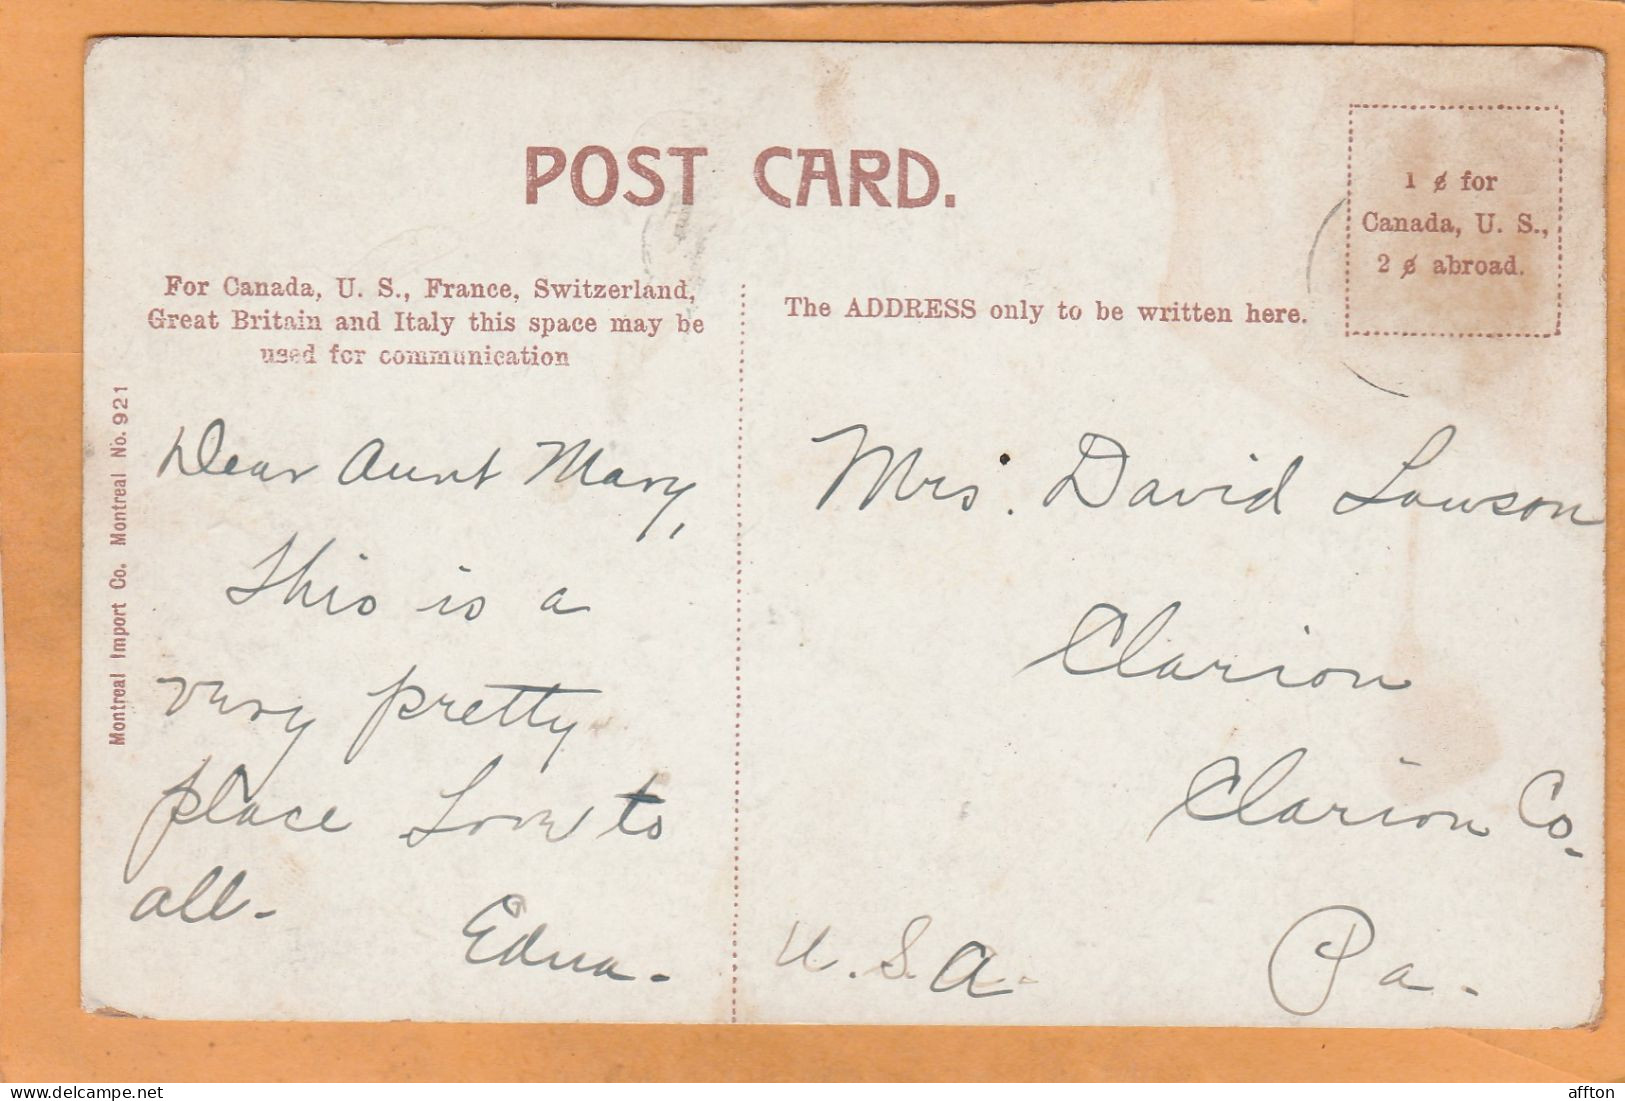 POST CARD.
1 ¢ for
Canada, U. S.,
2 ¢ abroad.
For Canada, U. S., France, Switzerland,
Great Britain and Italy this space may be
used for communication
The ADDRESS only to be written here.
Montreal Import Co. Montreal No. 921
Dear Aunt Mary,
This is a
very pretty
place Love to
all-
Edna-
Mrs. David Lawson
Clarion
Clarion Co.
Pa.
U.S.A.
delcampe.net
affton